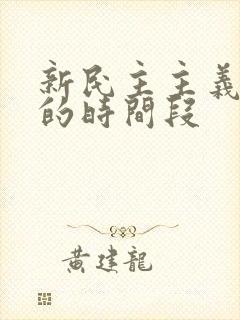 新民主主義
的時間段
黃建龍